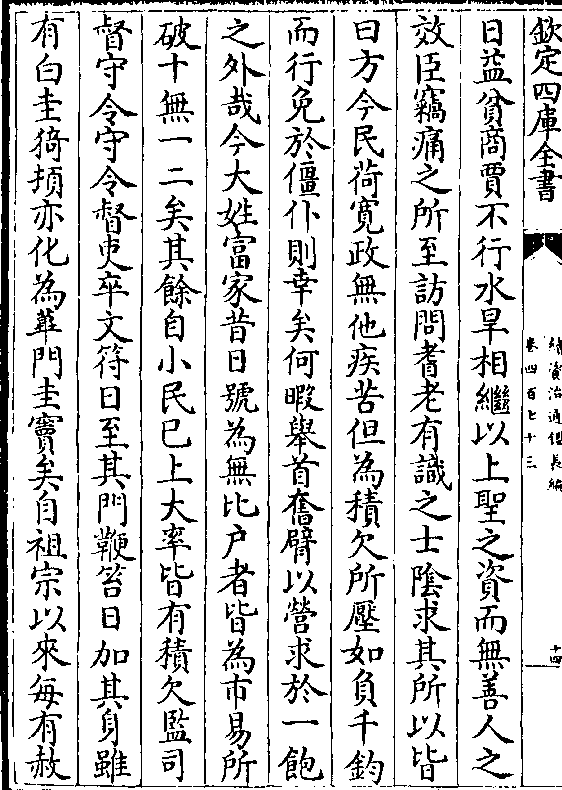 欽定四庫全書
續資治通鑑長編
卷四百七十三
十四
日益貧商賈不行水旱相繼以上聖之資而無善人之
效臣竊痛之所至訪問耆老有識之士陰求其所以皆
曰方今民荷寛政無他疾苦但為積欠所壓如負千鈞
而行免於僵仆則幸矣何暇舉首奮臂以營求於一飽
之外哉今大姓富家昔日號為無比户者皆為市易所
破十無一二矣其餘自小民已上大率皆有積欠監司
督守令守令督吏卒文符日至其門鞭笞日加其身雖
有白圭猗頓亦化為蓽門圭竇矣自祖宗以來每有赦